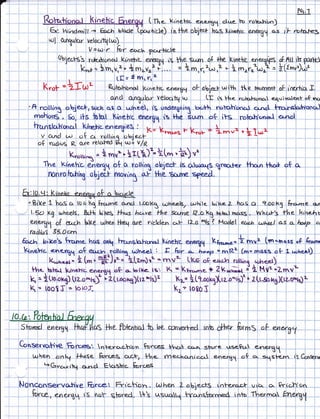 Pg.1
Rotational Kinetic Energy (The kinetic energy due to rotation)
Ex: Windmill → Each blade (particle) in the object has kinetic energy as it rotates
w/ angular velocity(ω)
V=ωr for each particle
Object's rotational kinetic energy is the sum of the kinetic energies of All its parts:
Krot = ½m₁v₁² + ½m₂v₂² + ..... = ½m₁r₁²ω² + ½m₂r₂²ω² = ½(Σmr²)ω²
I = Σm₁r₁²
Krot = ½Iω² Rotational kinetic energy of object with the moment of inertia I
and angular velocity ω (I is the rotational equivalent of mass
· A rolling object, such as a wheel, is undergoing both rotational and translational
motions. So, its total kinetic energy is the sum of its rotational and
translational kinetic energies: K = Ktrans + Krot = ½mv² + ½Iω²
v and ω of a rolling object
of radius R are related by ω=V/R
Krolling = ½mv² + ½I(v/R)² = ½(m + I/R²)v²
The kinetic energy of a rolling object is always greater than that of a
nonrotating object moving at the same speed.
Ex.10.4: Kinetic energy of a bicycle
· Bike 1 has a 10.0 kg frame and 1.00 kg wheels, while bike 2 has a 9.00 kg frame and
1.50 kg wheels. Both bikes thus have the same 12.0 kg total mass. What's the kinetic
energy of each bike when they are ridden at 12.0 m/s? Model each wheel as a hoop of
radius 35.0cm
Each bike's frame has only translational kinetic energy Kframe = ½mv² (m=mass of frame
Kinetic energy of each rolling wheel: I for a hoop = MR² (m=mass of 1 wheel)
Kwheel = ½(m + MR²/R²)v² = ½(2m)v² = mv² (KE of each rolling wheel)
The total kinetic energy of a bike is: K = Kframe + 2Kwheel = ½Mv² + 2mv²
K₁ = ½(10.0kg)(12.0m/s)² + 2(1.00kg)(12m/s)² K₂ = ½(9.00kg)(12.0m/s)² + 2(1.50kg)(12.0m/s)²
K₁ = 1008J = 1010J, K₂ = 1080J
10.6: Potential Energy
Stored energy that has the Potential to be converted into other forms of energy
Conservative Forces: Interaction forces that can store useful energy
when only these forces act, the mechanical energy of a system is Conserv
↳ Gravity and Elastic forces
Nonconservative Forces: Friction. When 2 objects interact via a friction
force, energy is not stored. It's usually transformed into Thermal Energy